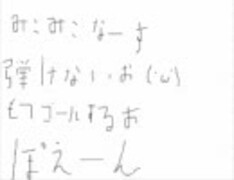 みこみこなーす
弾けないお(´;ω;)
もうゴールするお
ぽえーん